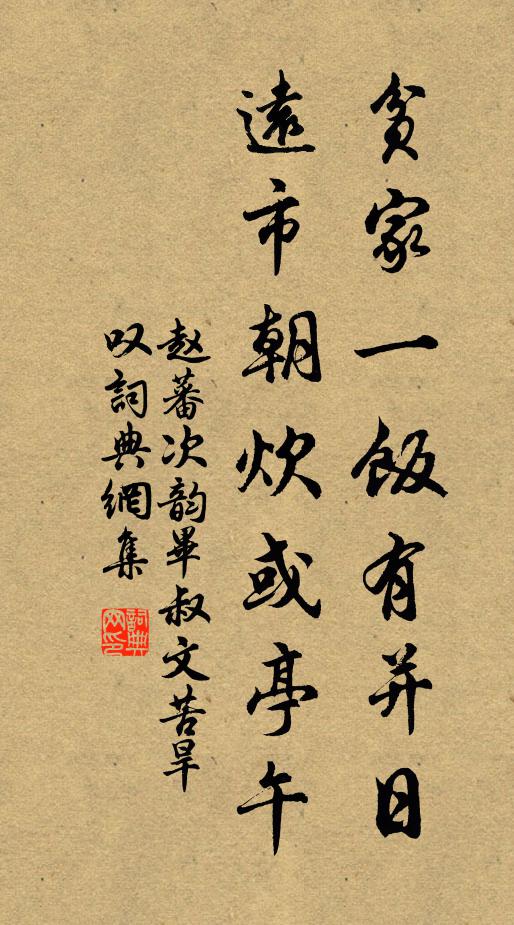 貧家一飯有并日
遠市朝炊或亭午
赵蕃次韵畢叔文苦旱
叹詞典網集
詞典
网印